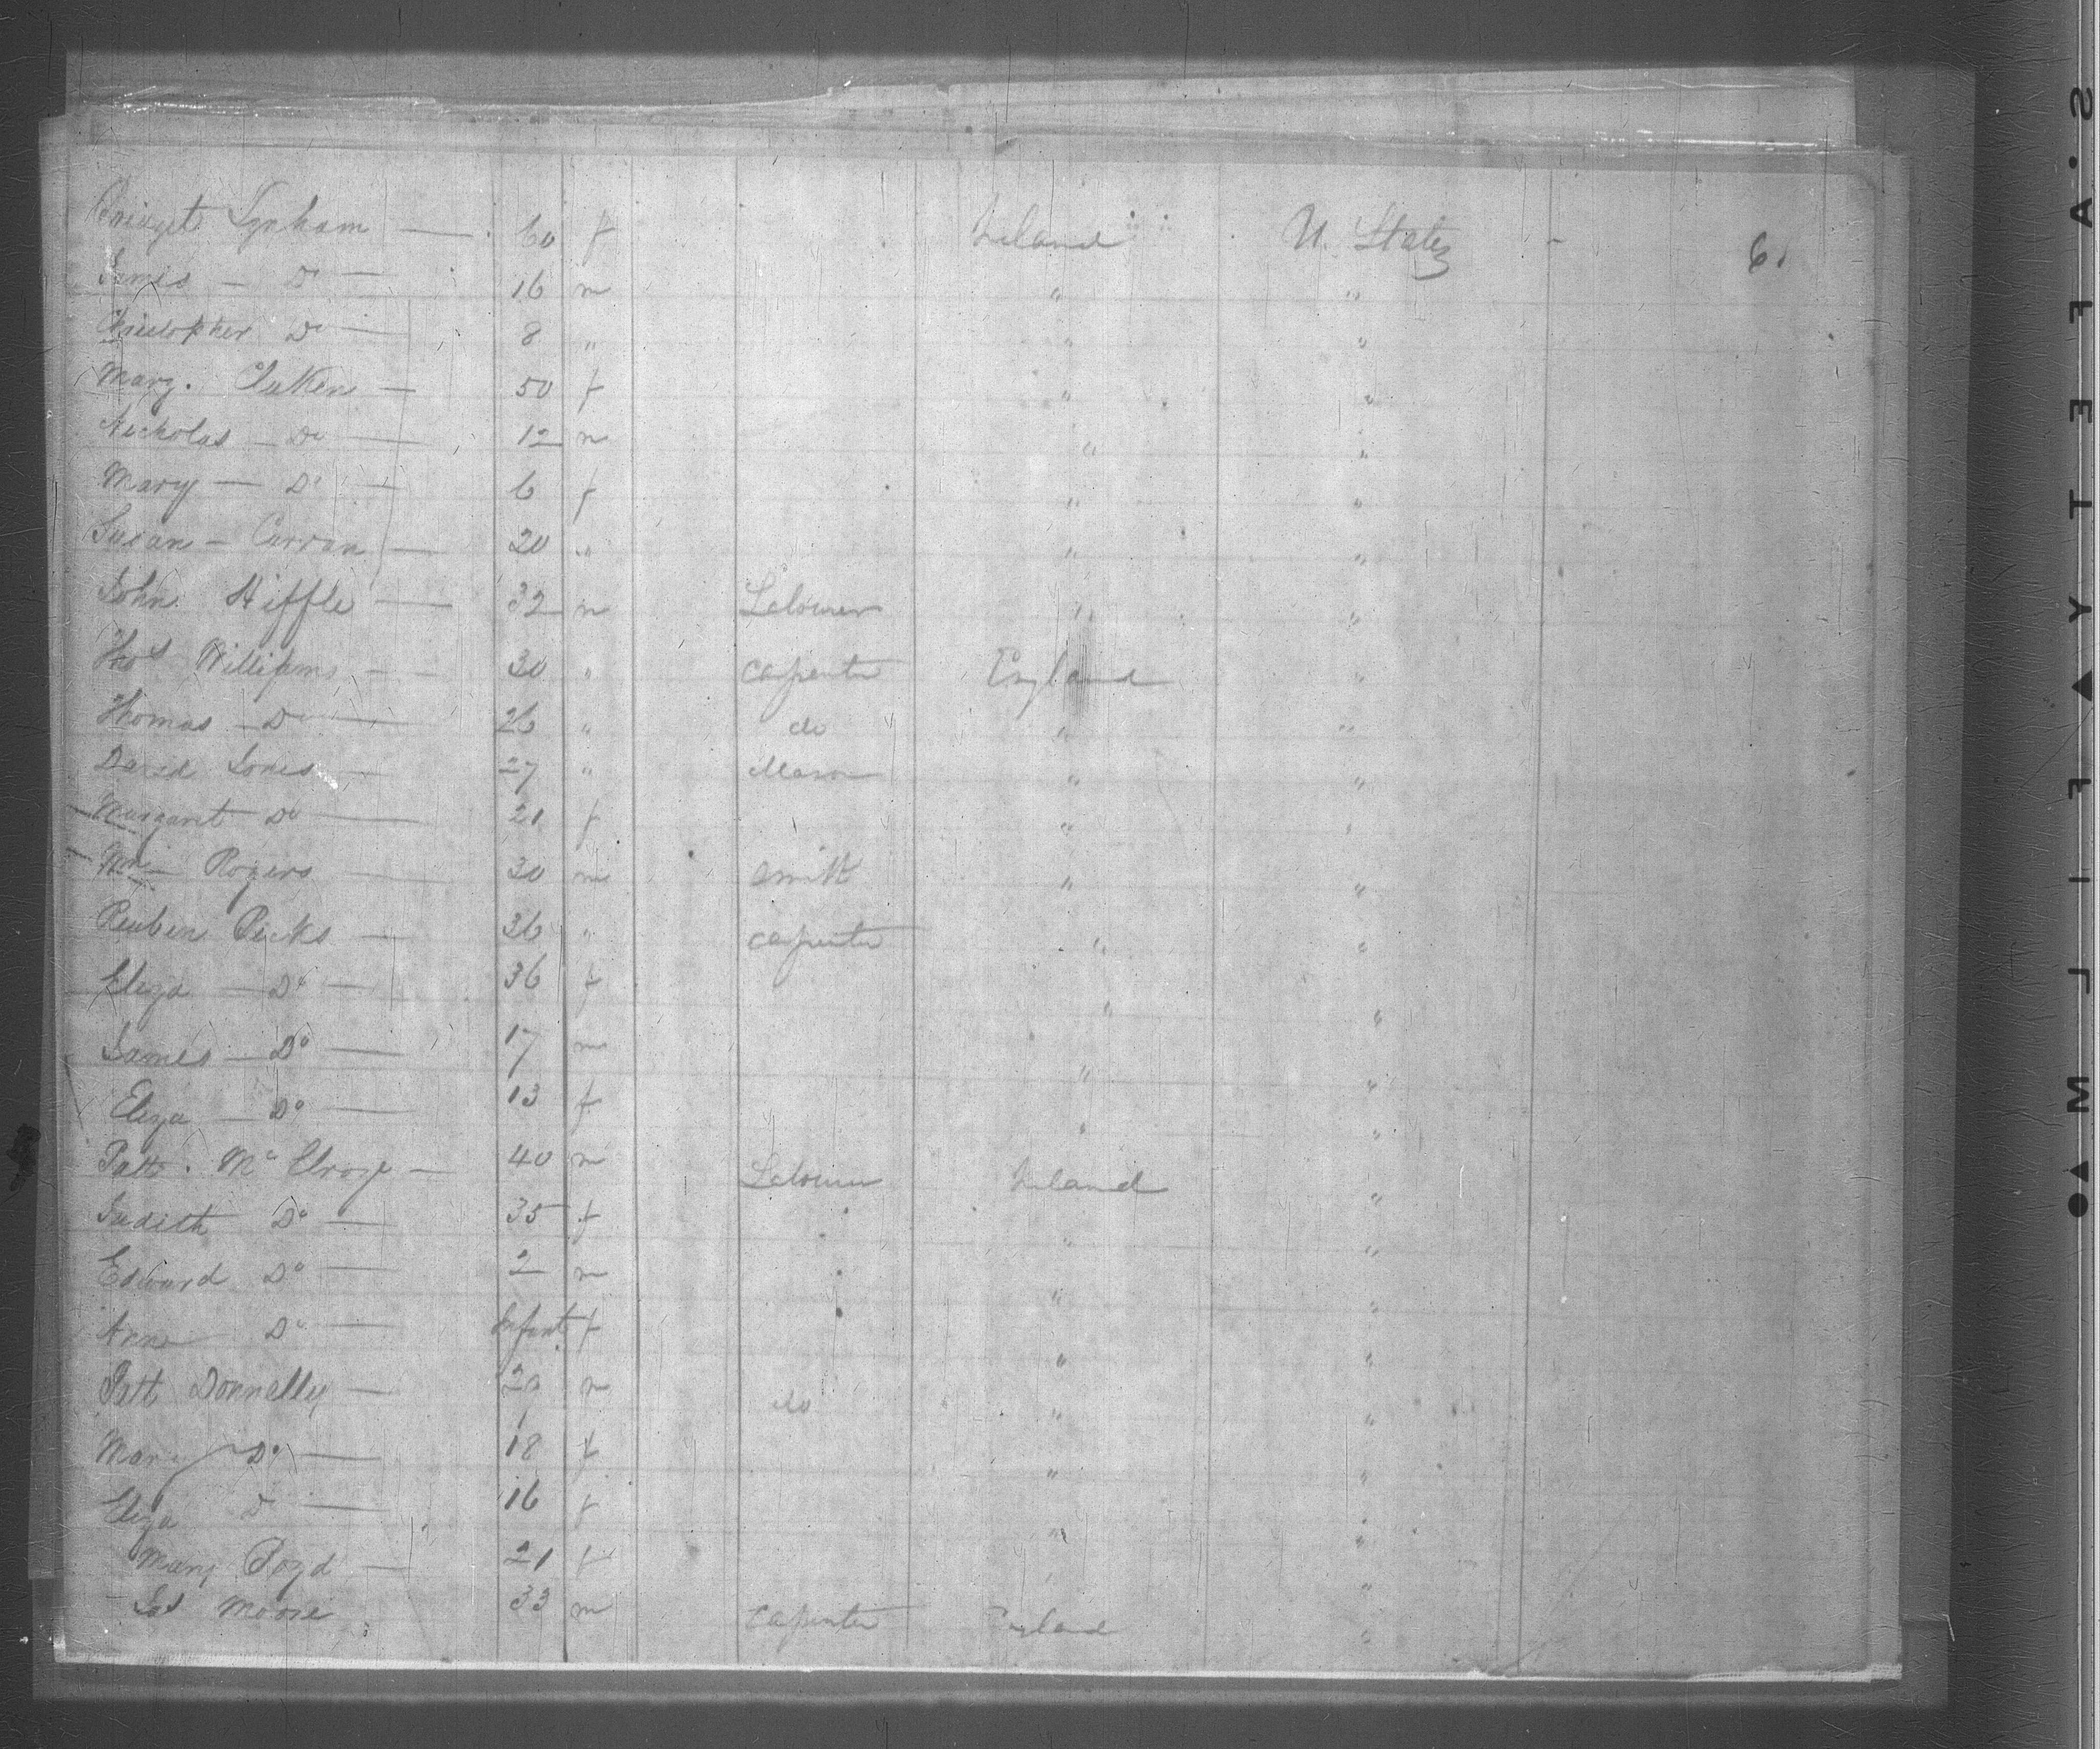 Bridget Lynham — 60 f Ireland U. States - 6.
James — Do — 16 m " "
Christopher Do — 8 " " "
Marg. — 50 f " "
Nicholas — Do — 12 m " "
Mary — Do — 6 f " "
Susan — Curran — 20 " " "
John Hiffle — 32 m Labourer " "
Thos Williams — 30 " carpenter England "
Thomas — Do — 26 " do " "
David Jones — 27 " Mason " "
Margaret Do — 21 f " "
Wm Rogers — 30 m Smith " "
Reuben Peeks — 36 " carpenter " "
Eliza — Do — 36 f " "
James — Do — 17 m " "
Eliza — Do — 13 f " "
Patt. Mc — 40 m Labourer Ireland "
Judith Do — 35 f " "
Edward Do — 2 m " "
Ann Do — Infant f " "
Patt Donnelly — 20 m do " "
Mary Do — 18 f " "
Eliza Do — 16 f " "
Mary Boyd — 21 f " "
Jas Moore 33 m carpenter England "